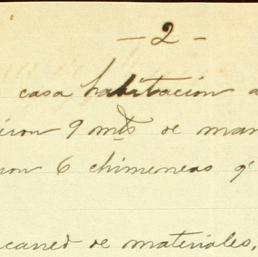 - 2 -
casa habitación a
9 mts de man
6 chimeneas q
de materiales,